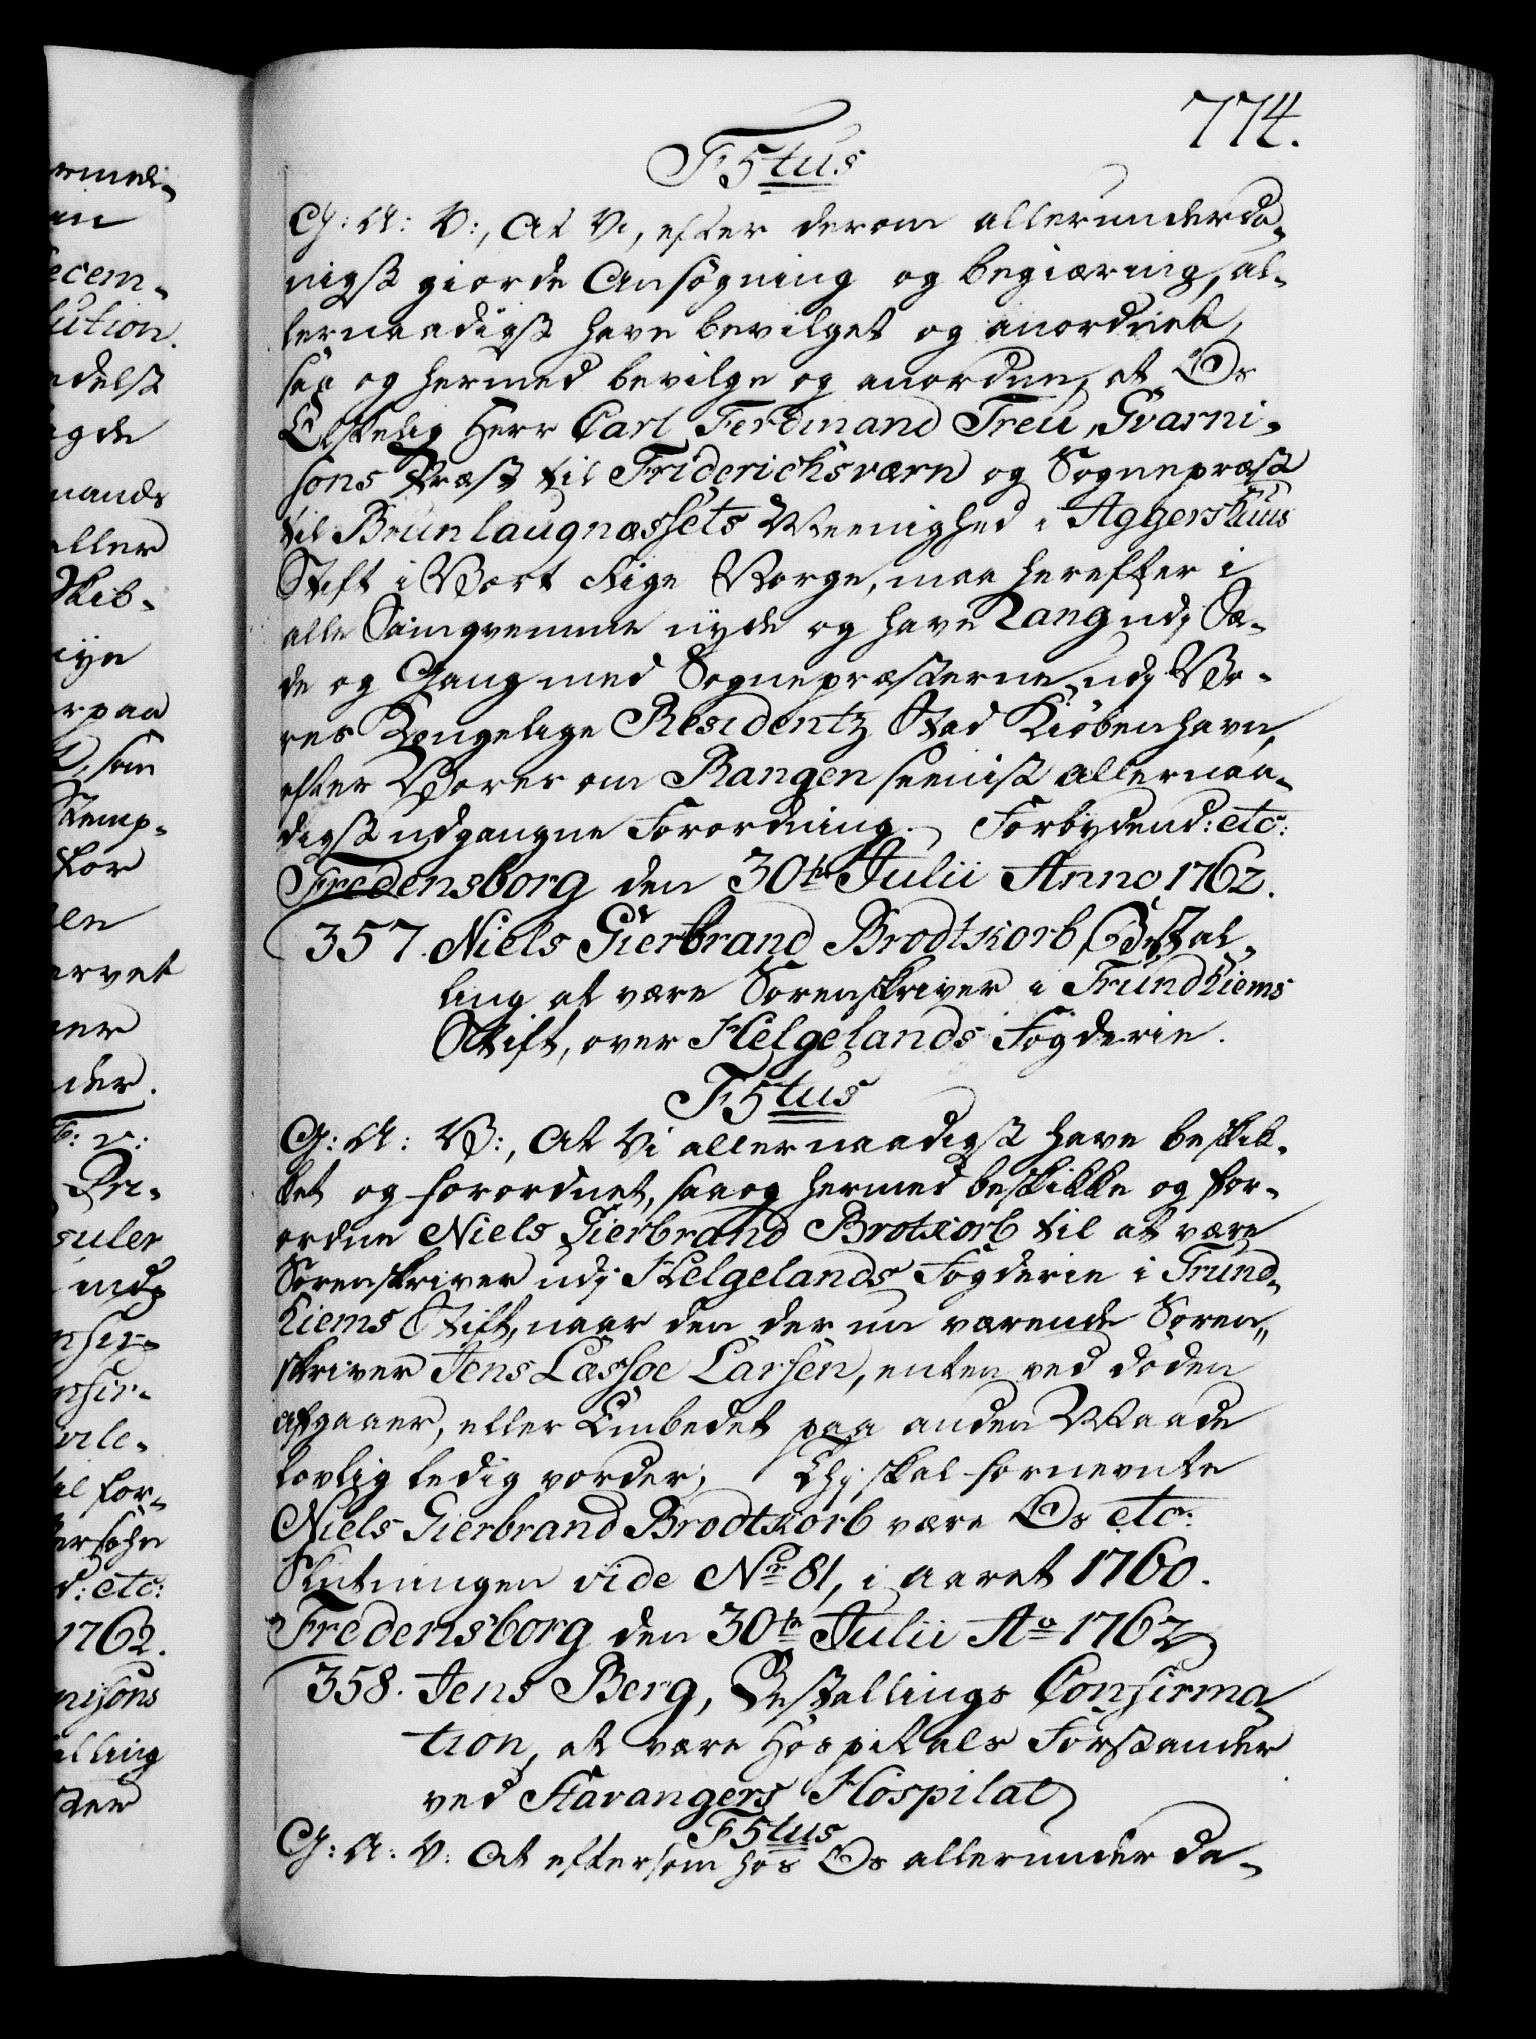 774.
F 5tus
G: A: V:, At Vi, efter derom allerunderda-
nigst giorde Ansøgning og begiæring, al-
lernaadigst have bevilget og anordnet,
saa og hermed bevilge og anordne, at Os
Elskelig Herr Carl Ferdinand Treu, Gvarni-
sons Præst til Friderichsværn og Sognepræst
til Brunlaugnæssets Meenighed i Aggershuus
Stift i Vort Rige Norge, maa herefter i
alle Samqvemme nyde og have Rang udj Sæ-
de og Gang med Sognepræsterne udj Vo-
res Kongelige Residentz Stad Kiøbenhavn,
efter Vores om Rangen seenist allernaa-
digst udgangne Forordning. Forbydend: etc:
Fredensborg den 30te Julii Anno 1762.
357. Niels Gierbrand Brodtkorb Bestal-
ling at være Sorenskriver i Trundhiems
Stift, over Helgelands Fogderie.
F 5tus
G: A: V:, At Vi allernaadigst have beskik-
ket og forordnet, saa og hermed beskikke og for-
ordne Niels Gierbrand Brotkorb til at være
Sorenskriver udj Helgelands Fogderie i Trund-
hiems Stift, naar den der nu værende Soren-
skriver Jens Læssøe Larsen, enten ved døden
afgaaer, eller Embedet paa anden Maade
lovlig ledig vorder; Thj skal fornevnte
Niels Gierbrand Brodtkorb være Os etc:
Slutningen vide No 81, i aaret 1760.
Fredensborg den 30te Julii Ao 1762
358. Jens Berg, Bestallings Confirma-
tion, at være Hospitals Forstander
ved Stavangers Hospital
F 5tus
G: A: V: At eftersom hos Os allerunderda-
ermed-
an
ecem-
lution.
edelst
agde
mands
eller
Skib-
nye
erpaa
som
Stemp-
for
en
arvet
ner
der.
Pri-
suler
endz
vile-
til for-
etc:
1762.
nisons
alling